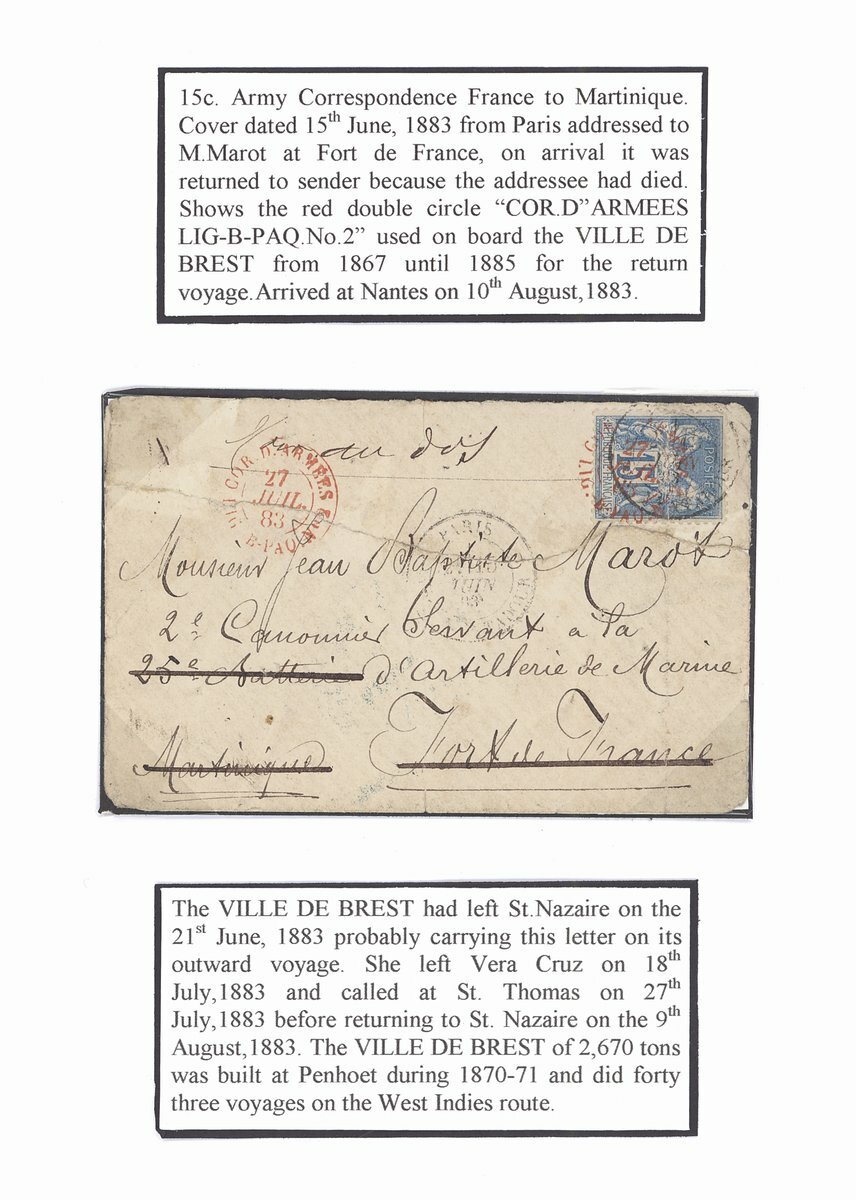 15c. Army Correspondence France to Martinique.
Cover dated 15th June, 1883 from Paris addressed to
M.Marot at Fort de France, on arrival it was
returned to sender because the addressee had died.
Shows the red double circle “COR.D”ARMEES
LIG-B-PAQ.No.2” used on board the VILLE DE
BREST from 1867 until 1885 for the return
voyage.Arrived at Nantes on 10th August,1883.
au dos
COR. D'ARMÉES
27
JUIL.
83
LIG. B-PAQ.
POSTES
15
PARIS
JUIN
Monsieur Jean Baptiste Marot
2e Canonnier Servant a la
25e Batterie d'Artillerie de Marine
Fort de France
Martinique
The VILLE DE BREST had left St.Nazaire on the
21st June, 1883 probably carrying this letter on its
outward voyage. She left Vera Cruz on 18th
July,1883 and called at St. Thomas on 27th
July,1883 before returning to St. Nazaire on the 9th
August,1883. The VILLE DE BREST of 2,670 tons
was built at Penhoet during 1870-71 and did forty
three voyages on the West Indies route.